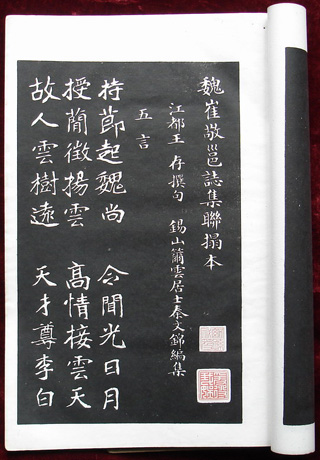 魏崔敬邕誌集聯搨本
江都王 存撰句 錫山籋雲居士秦文錦編集
五言
持節起魏尚 令聞光日月
授簡徵揚雲 高情接雲天
故人雲樹遠 天才尊李白